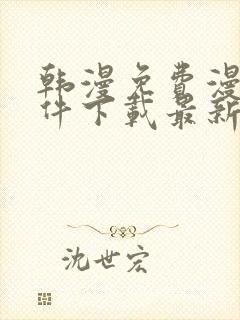 韩漫免费漫
件下载最新
沈世宏